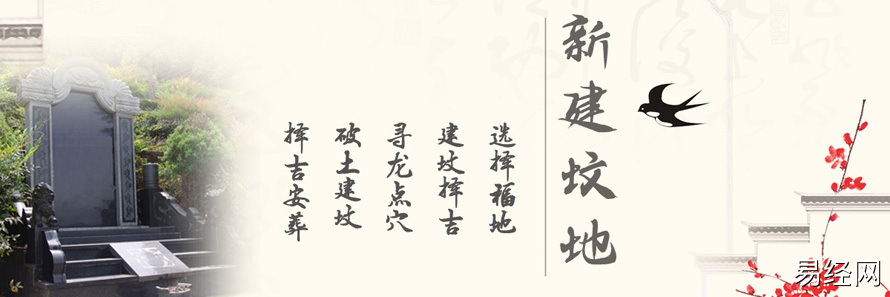 新建坟地
选择福地
建坟择吉
寻龙点穴
破土建坟
择吉安葬
易经网